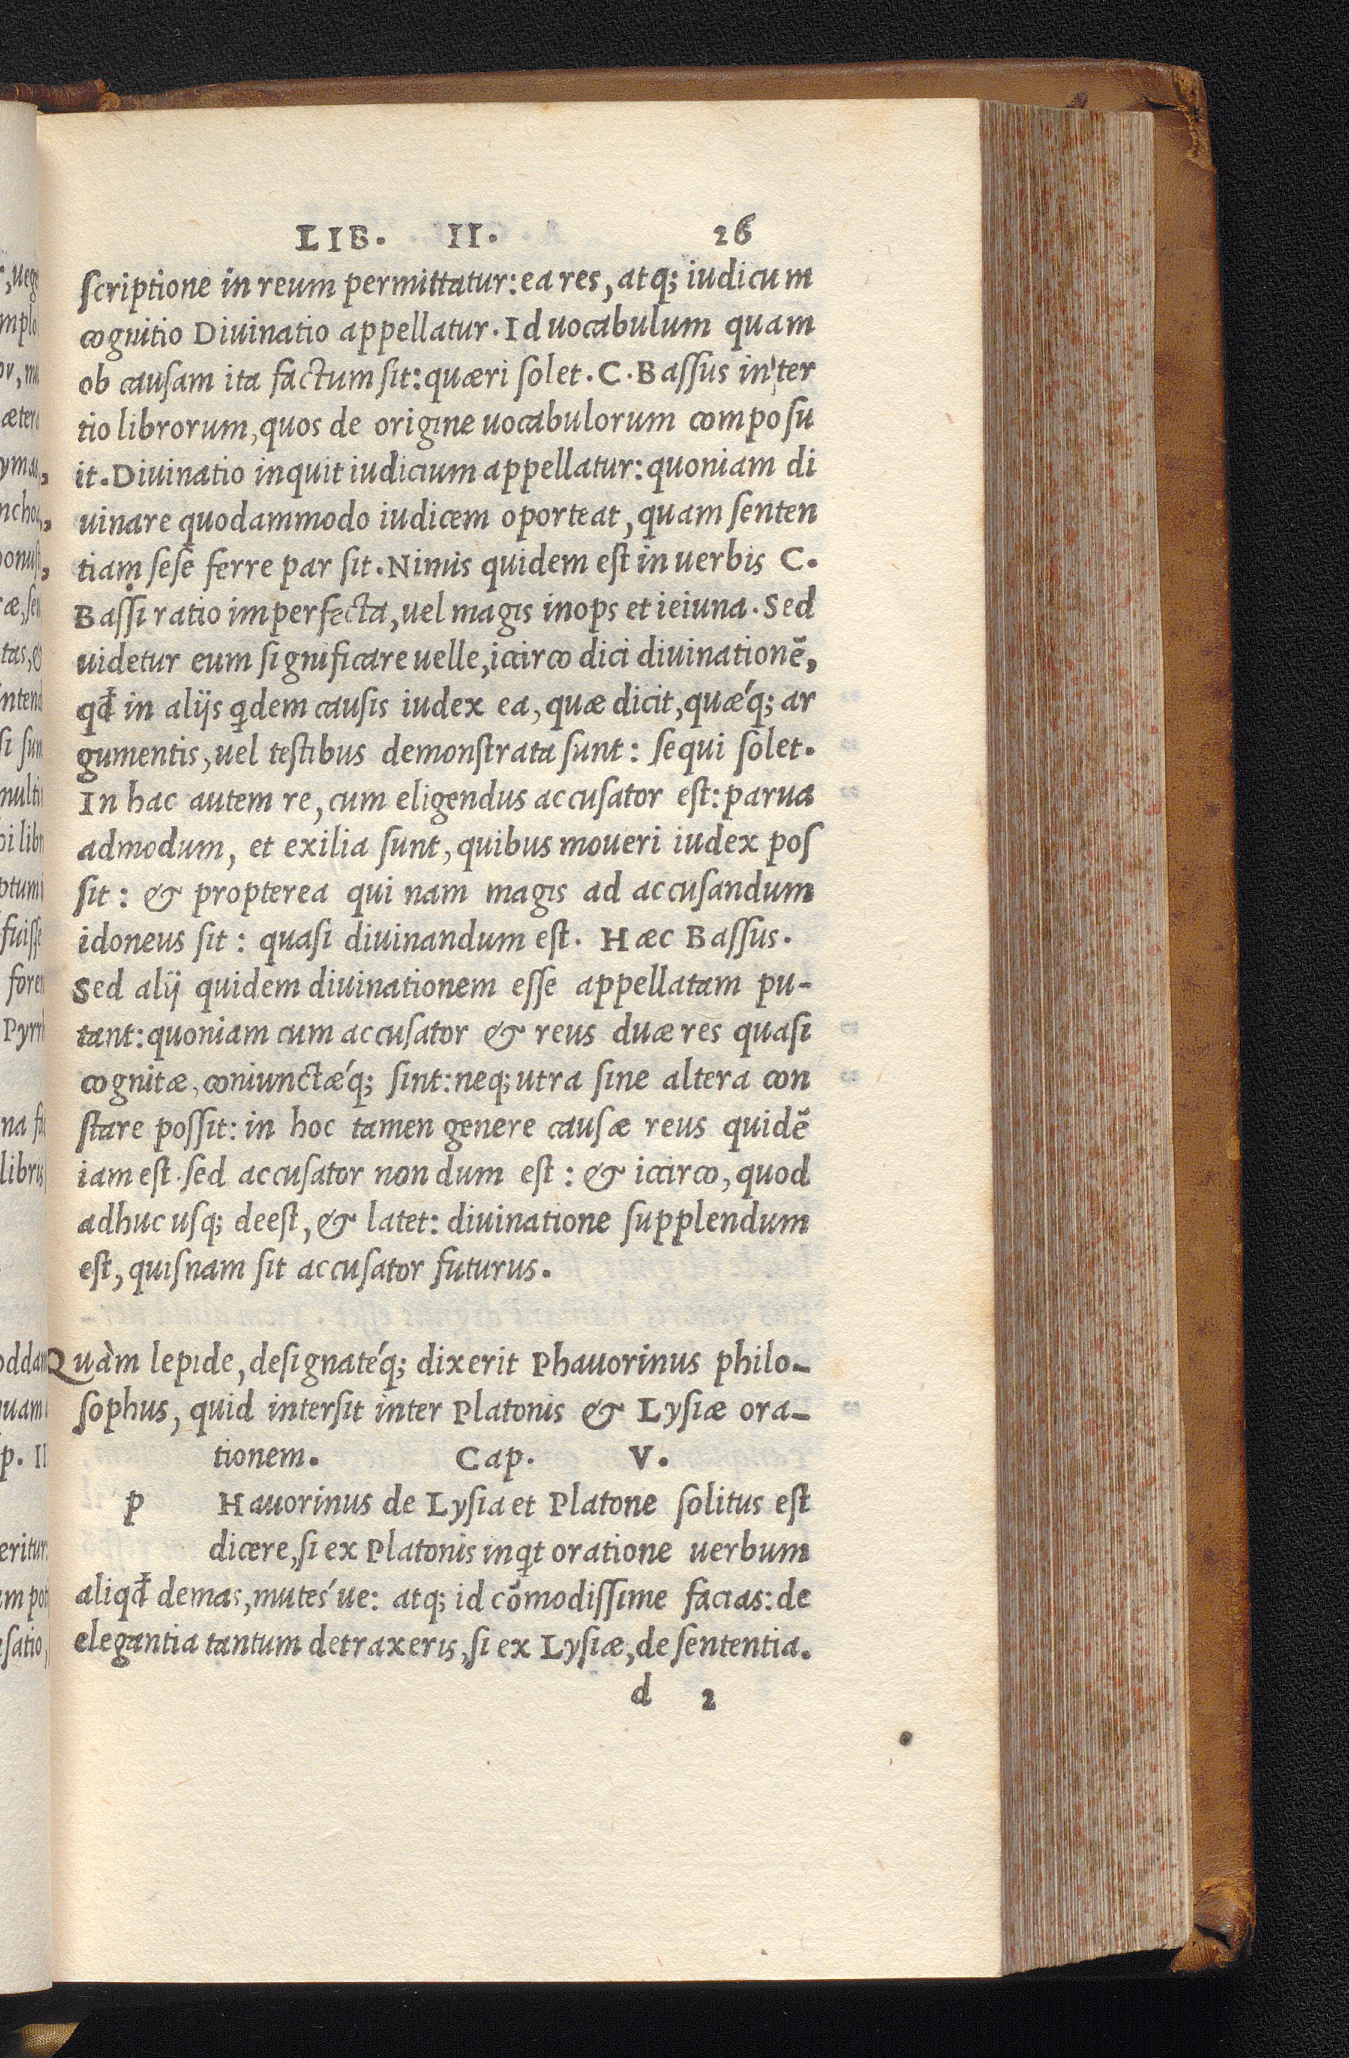 LIB. II. 26
scriptione in reum permittatur: ea res, atq; iudicum
cognitio Diuinatio appellatur. Id uocabulum quam
ob causam ita factum sit: quæri solet. C. Bassus in ter
tio librorum, quos de origine uocabulorum composu
it. Diuinatio inquit iudicium appellatur: quoniam di
uinare quodammodo iudicem oporteat, quam senten
tiam sese ferre par sit. Nimis quidem est in uerbis C.
Bassi ratio imperfecta, uel magis inops et ieiuna. Sed
uidetur eum significare uelle, iccirco dici diuinationē,
qđ in alijs qdem causis iudex ea, quæ dicit, quǽq; ar
gumentis, uel testibus demonstrata sunt: sequi solet.
In hac autem re, cum eligendus accusator est: parua
admodum, et exilia sunt, quibus moueri iudex pos
sit: & propterea qui nam magis ad accusandum
idoneus sit: quasi diuinandum est. Hæc Bassus.
Sed alij quidem diuinationem esse appellatam pu-
tant: quoniam cum accusator & reus duæ res quasi
cognitæ, coniunctǽq; sint: neq; utra sine altera con
stare possit: in hoc tamen genere causæ reus quidē
iam est. sed accusator non dum est: & iccirco, quod
adhuc usq; deest, & latet: diuinatione supplendum
est, quisnam sit accusator futurus.
Quàm lepide, designatéq; dixerit Phauorinus philo-
sophus, quid intersit inter Platonis & Lysiæ ora-
tionem. Cap. V.
p Hauorinus de Lysia et Platone solitus est
dicere, si ex Platonis inqt oratione uerbum
aliqđ demas, mutes´ue: atq; id cōmodissime facias: de
elegantia tantum detraxeris, si ex Lysiæ, de sententia.
d 2